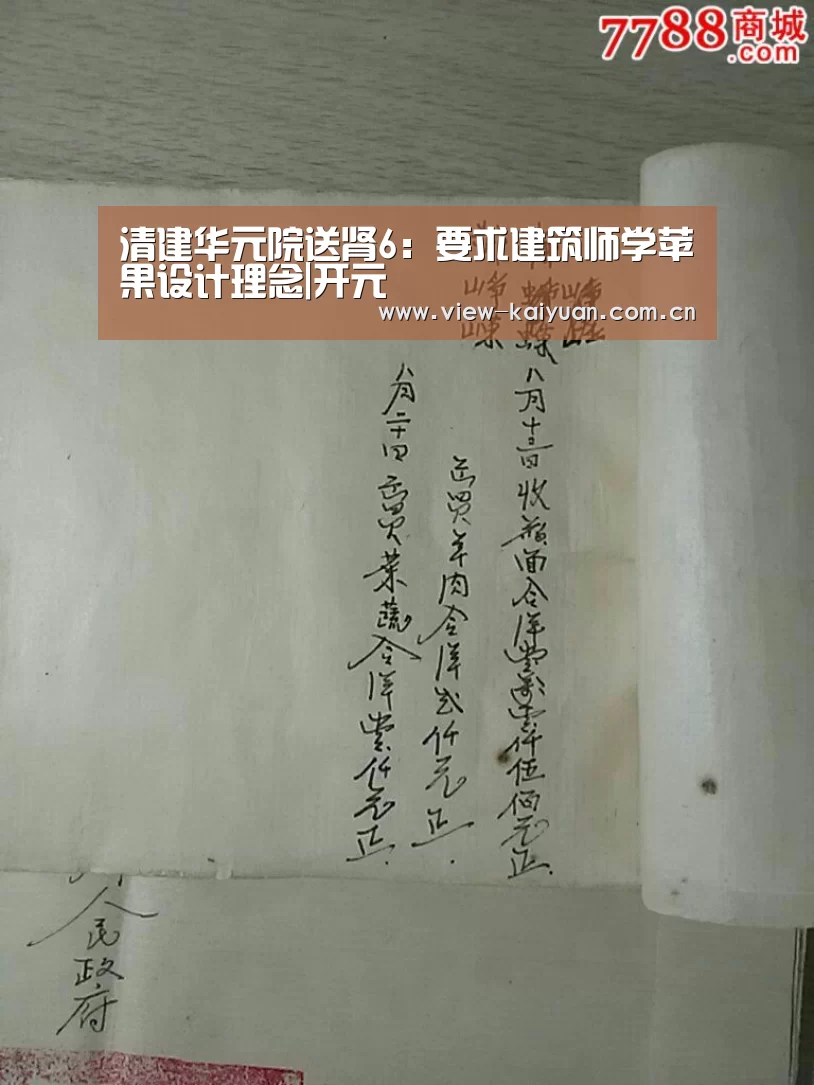 7788商城
.com
清建华元院送肾6：要求建筑师学苹
果设计理念|开元
www.view-kaiyuan.com.cn
八月十三日收 面合洋壹萬壹仟伍佰元正.
買羊肉合洋弍仟元正.
八月二十四 買菜蔬合洋壹仟元正.
人民政府